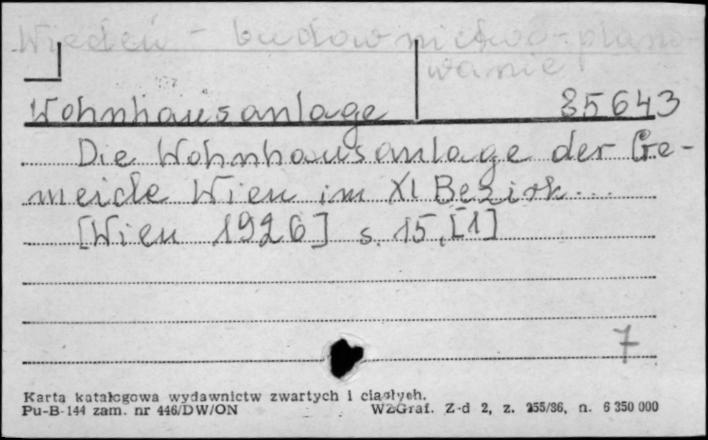 Wiedeń - budownictwo - plano-
wanie
Wohnhausanlage 35643
Die Wohnhausanlage der Ge-
meide Wien im XI Bezirk...
[Wien 1926] s. 15, [1]
7
Karta katalogowa wydawnictw zwartych i ciągłych.
Pu-B-144 zam. nr 446/DW/ON WZGraf. Z-d 2, z. 255/86, n. 6 350 000